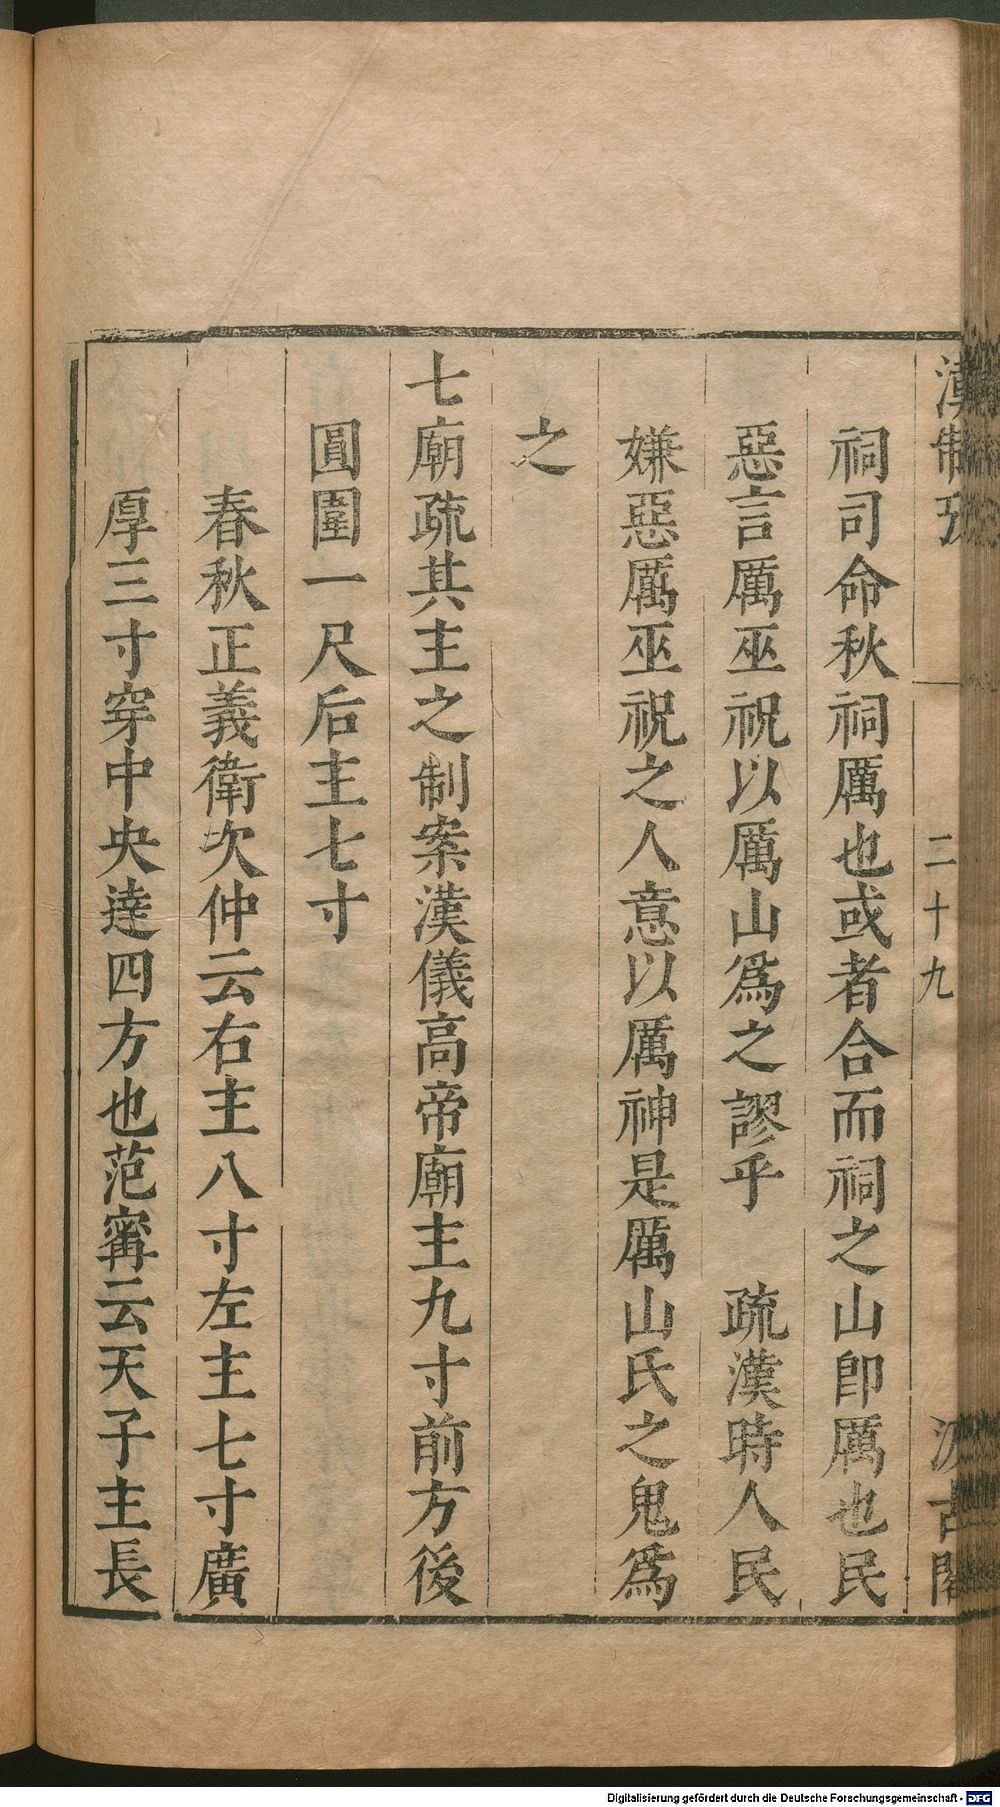 漢制攷
二十九
汲古閣
祠司命秋祠厲也或者合而祠之山卽厲也民
惡言厲巫祝以厲山爲之謬乎　疏漢時人民
嫌惡厲巫祝之人意以厲神是厲山氏之鬼爲
之
七廟疏其主之制案漢儀高帝廟主九寸前方後
圓圍一尺后主七寸
春秋正義衛次仲云右主八寸左主七寸廣
厚三寸穿中央達四方也范甯云天子主長
Digitalisierung gefördert durch die Deutsche Forschungsgemeinschaft - DFG